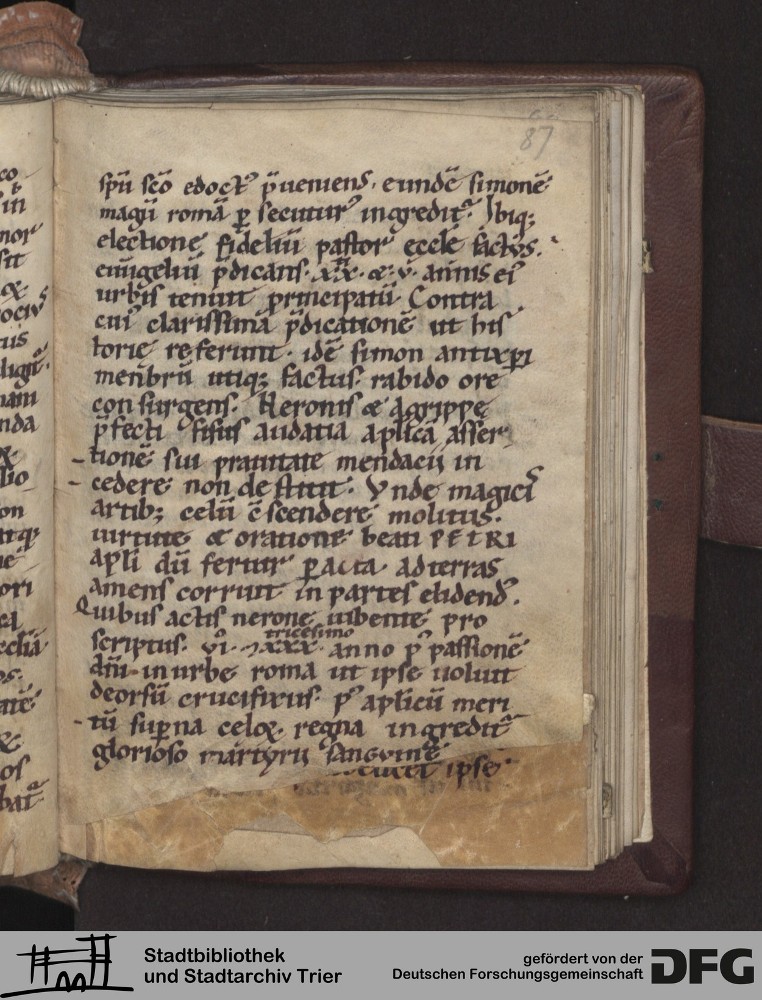 87
spū scō edoctꝰ p̄ueniens. eundē simonē
magū romā ꝑ secuturꝰ ingredit᷑. Ibiq;
electione fidelıū pastor eccłe factus.
euꝯgeliū p̄dicans. xx. &. v. annis ei
urbis tenuit principatū. Contra
cuiꝰ clarissimā p̄dicationē ut his
torie referunt. idē simon antixp̄i
membrū utiq; factus. rabido ore
consurgens. Neronis & agrippę
p̄fecti fisus audatia aplicā asser
tionē sui prauitate mendacii in
cedere non destitit. Vnde magicis
artib; celū c̄scendere molitus.
uirtute & oratione beati PETRI
apłi dū fertur ꝑ aera. ad terras
amens corruit in partes elidendꝰ.
Quibus actis nerone iubente pro
scriptus. tricesimo
vi. xxx. anno p̄ passionē
dn̄i in urbe roma ut ipse uoluit
deorsū crucifixus. pꝰ aplicū meri
tū superna celoꝝ regna ingredit᷑
glorioso martyrii sanguine
ipse
Stadtbibliothek
und Stadtarchiv Trier
gefördert von der
Deutschen Forschungsgemeinschaft
DFG